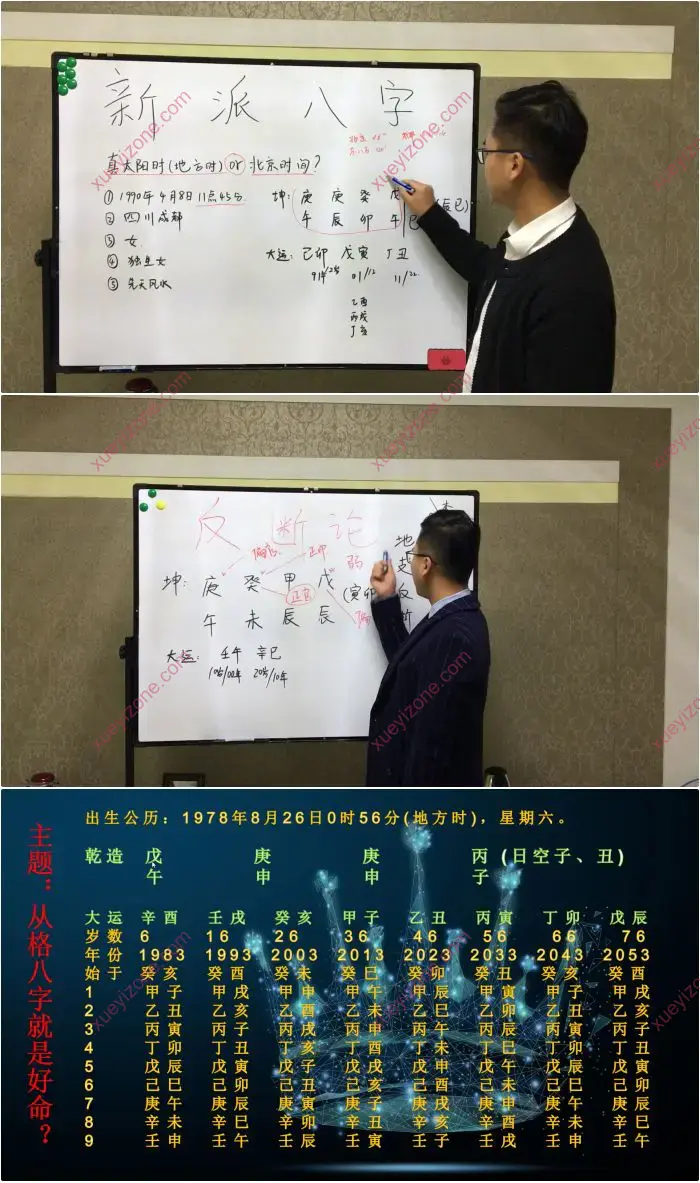 新派八字
真太阳时(地方时) or 北京时间?
① 1990年4月8日11点45分
② 四川成都
③ 女
④ 独生女
⑤ 先天风水
坤: 庚 庚 癸 戊
午 辰 卯 午 巳 (辰巳)
大运: 己卯 戊寅 丁丑
01/12 11/22
乙酉
丙戌
丁亥
反断论
偏官 正印
坤: 庚 癸 甲 戊
正官
弱
午 未 辰 辰
(寅卯
地
支
反
大运: 壬午 辛巳
10岁/00年 20岁/10年
主题：从格八字就是好命？
出生公历：1978年8月26日0时56分(地方时)，星期六。
乾造 戊 庚 庚 丙 (日空子、丑)
午 申 申 子
大运 辛酉 壬戌 癸亥 甲子 乙丑 丙寅 丁卯 戊辰
岁数 6 16 26 36 46 56 66 76
年份 1983 1993 2003 2013 2023 2033 2043 2053
始于 癸亥 癸酉 癸未 癸巳 癸卯 癸丑 癸亥 癸酉
1 甲子 甲戌 甲申 甲午 甲辰 甲寅 甲子 甲戌
2 乙丑 乙亥 乙酉 乙未 乙巳 乙卯 乙丑 乙亥
3 丙寅 丙子 丙戌 丙申 丙午 丙辰 丙寅 丙子
4 丁卯 丁丑 丁亥 丁酉 丁未 丁巳 丁卯 丁丑
5 戊辰 戊寅 戊子 戊戌 戊申 戊午 戊辰 戊寅
6 己巳 己卯 己丑 己亥 己酉 己未 己巳 己卯
7 庚午 庚辰 庚寅 庚子 庚戌 庚申 庚午 庚辰
8 辛未 辛巳 辛卯 辛丑 辛亥 辛酉 辛未 辛巳
9 壬申 壬午 壬辰 壬寅 壬子 壬戌 壬申 壬午
xueyizone.com